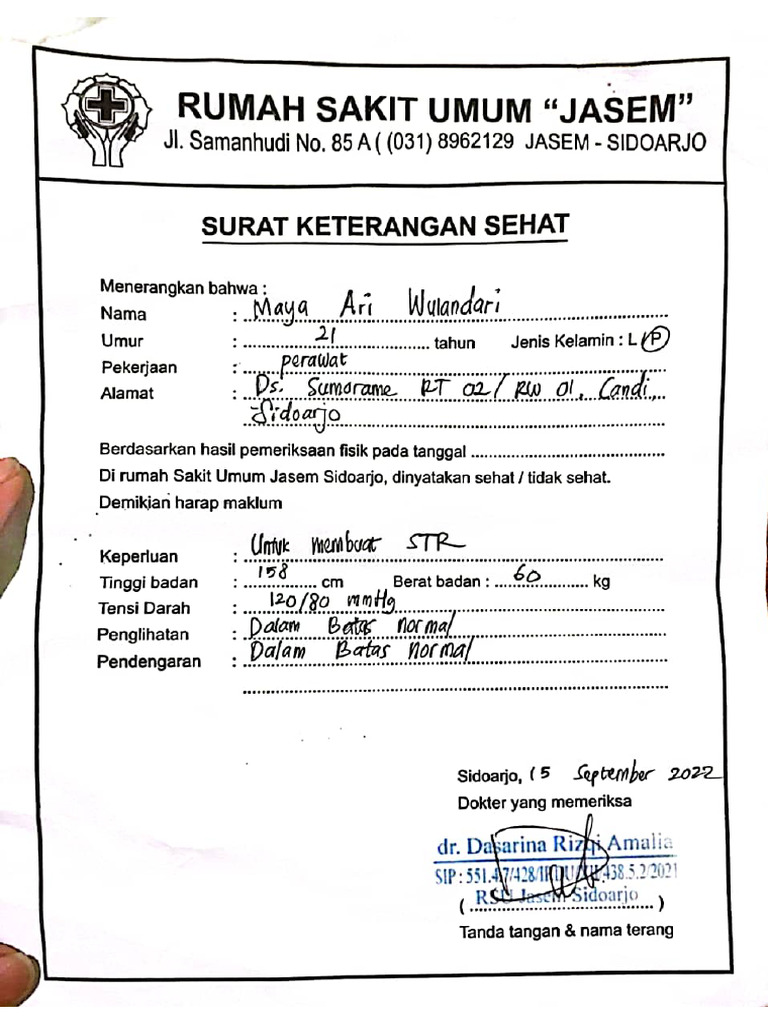 RUMAH SAKIT UMUM “JASEM”
Jl. Samanhudi No. 85 A ( (031) 8962129 JASEM - SIDOARJO
SURAT KETERANGAN SEHAT
Menerangkan bahwa :
Nama : Maya Ari Wulandari
Umur : 21 tahun Jenis Kelamin : L / P
Pekerjaan : perawat
Alamat : Ds. Sumorame RT 02 / RW 01, Candi,
Sidoarjo
Berdasarkan hasil pemeriksaan fisik pada tanggal ........................................
Di rumah Sakit Umum Jasem Sidoarjo, dinyatakan sehat / tidak sehat.
Demikian harap maklum
Keperluan : Untuk membuat STR
Tinggi badan : 158 cm Berat badan : 60 kg
Tensi Darah : 120/80 mmHg
Penglihatan : Dalam Batas normal
Pendengaran : Dalam Batas normal
Sidoarjo, 15 September 2022
Dokter yang memeriksa
dr. Dasarina Rizqi Amalia
SIP : 551.4.7/428/ 438.5.2/2021
RSU Jasem Sidoarjo
( ........................................ )
Tanda tangan & nama terang